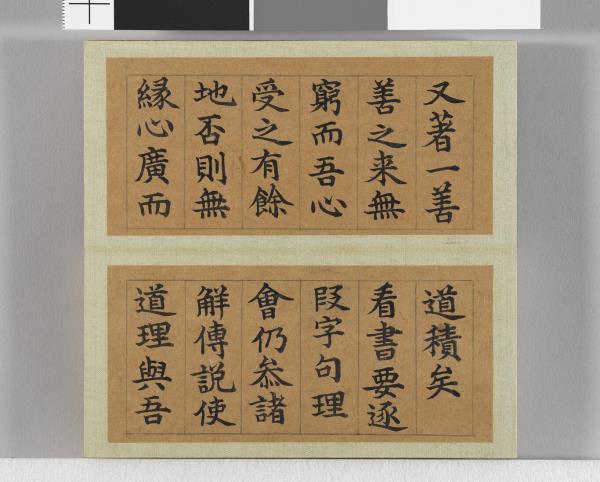 又著一善
善之来無
窮而吾心
受之有餘
地否則無
縁心廣而
道積矣
看書要逐
段字句理
會仍叅諸
觧傳説使
道理與吾